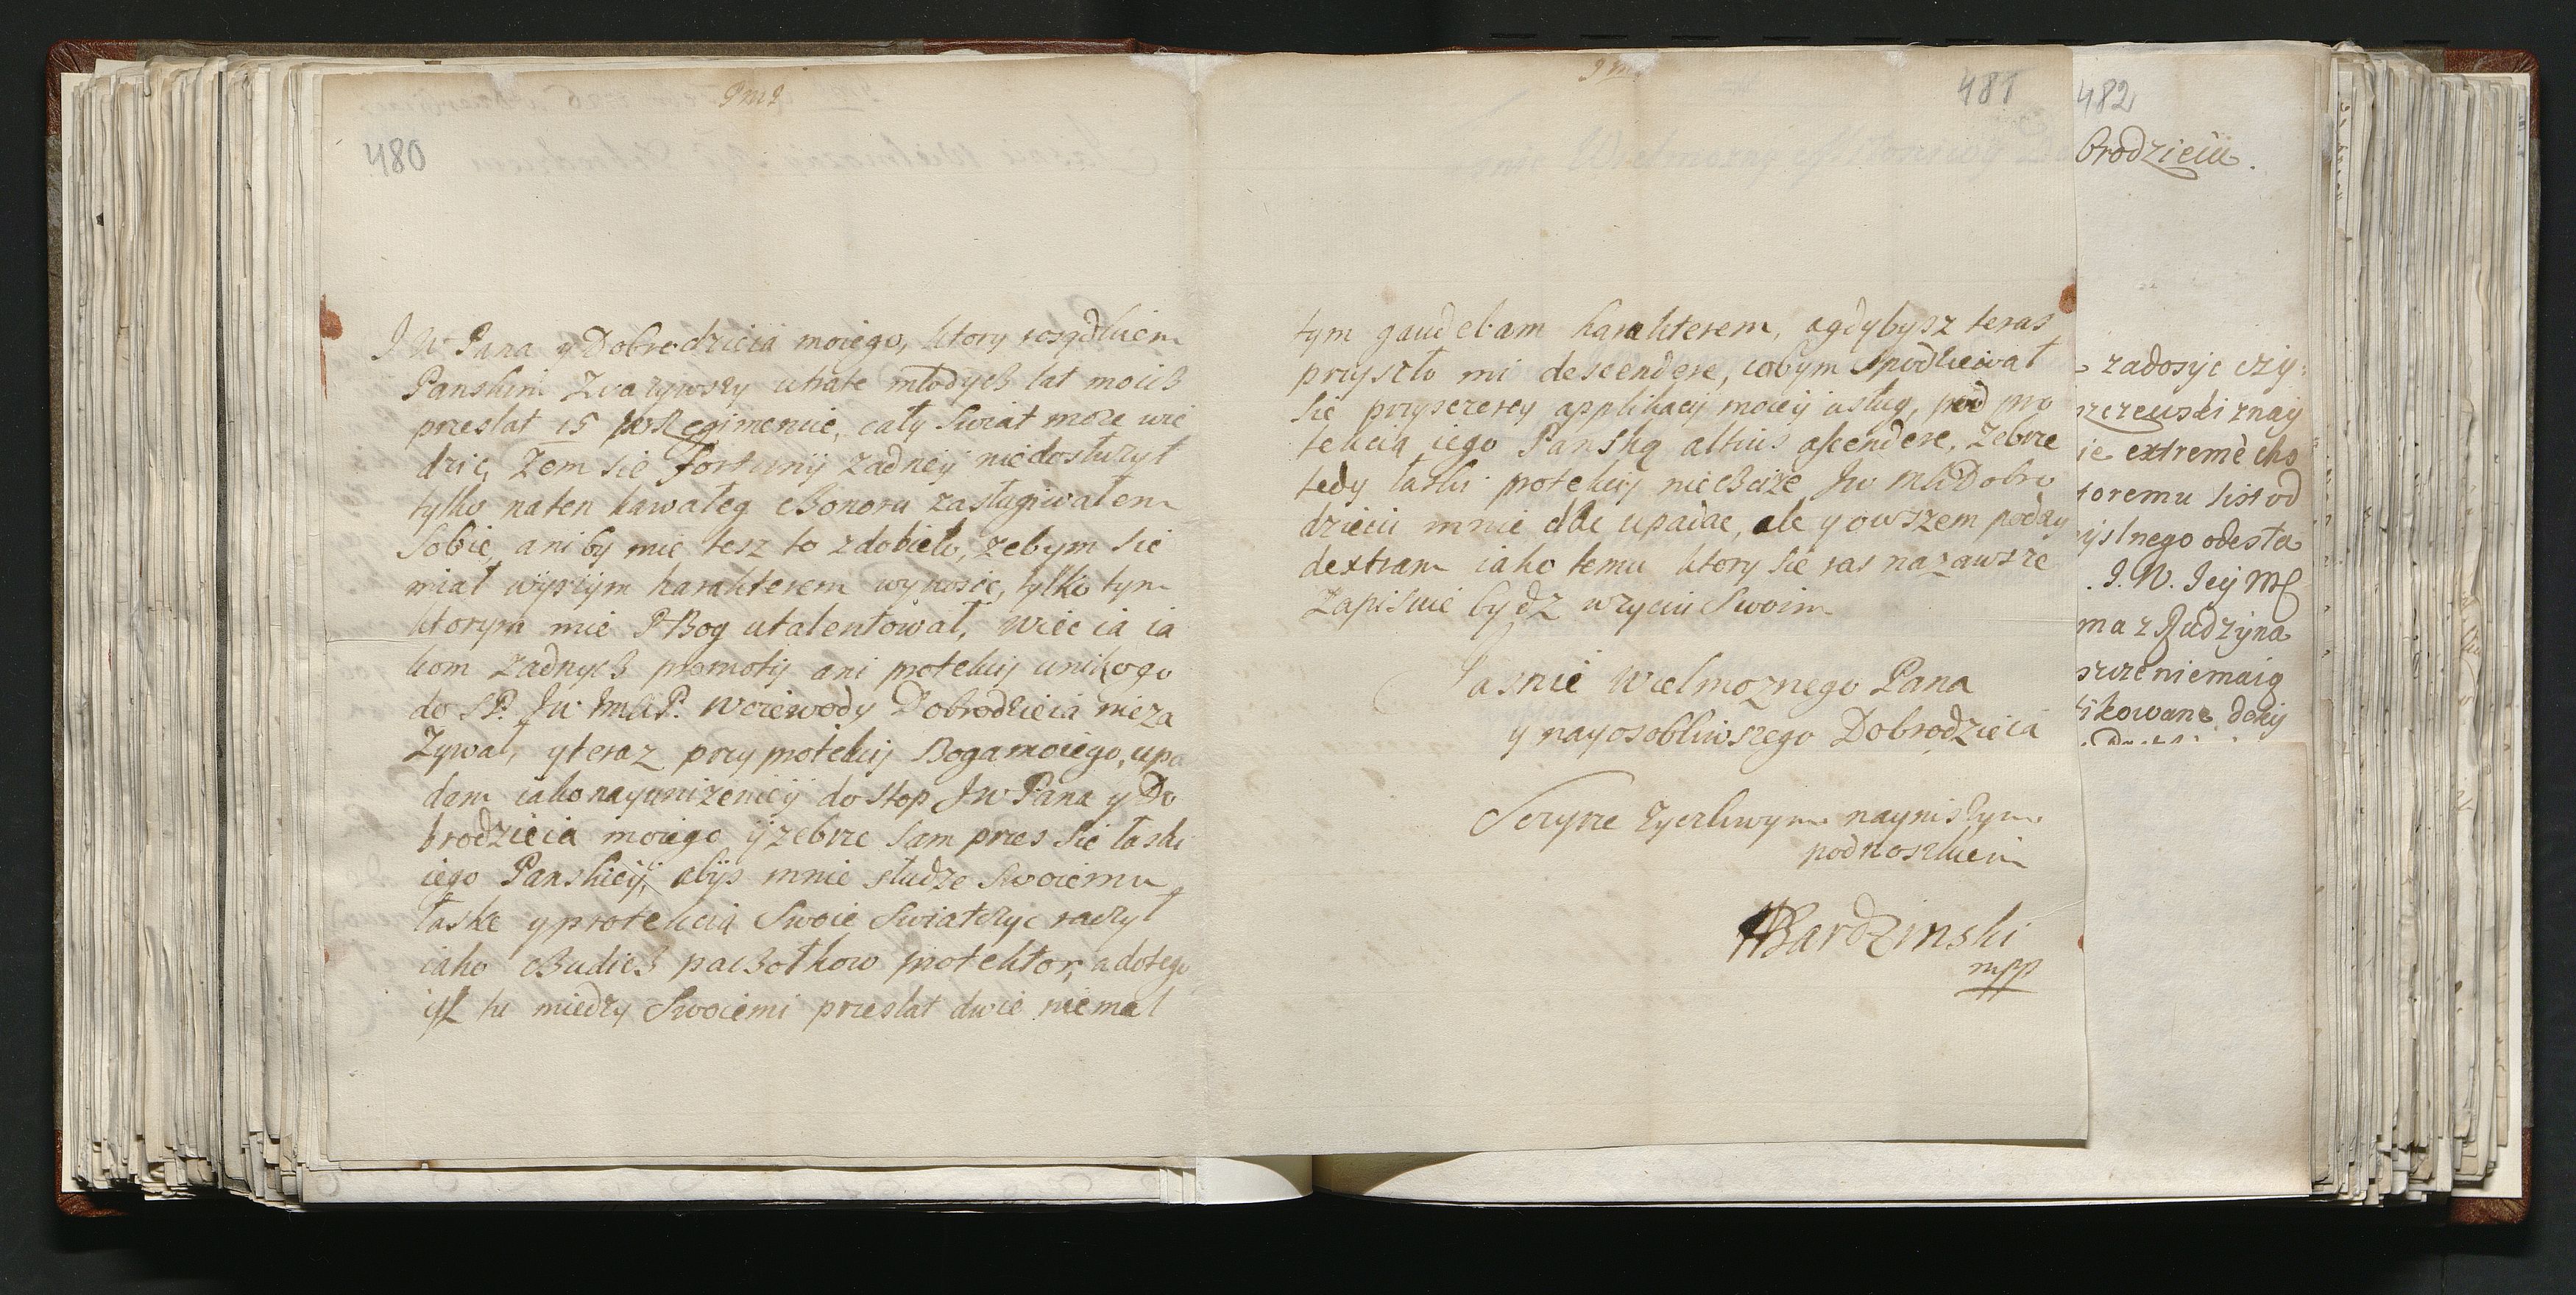 480
J W Pana y Dobrodzieia moiego, ktory rosądkiem
Panskim Zwazywszy utrate młodych lat moich
przeslat 15 w Regimencie, cały Swiat moze wie
dzic, Zem sie Fortunij zadneij niedosłuzył
tylko naten kawałeg chonoru zasługiwałem
Sobie, aniby mie tesz to zdobieło, zebym sie
miał wijszijm harakterem wynosic, tylko tym
ktorym mie P Bog utalentował, wiec ia ia
kom zadnych promotij ani protekcij unikogo
do S P. Jw Im P. Woiewody Dobrodzieia nieza
Zywał, yteraz przy protekcij Boga moiego, upa
dam iako nayunizenieij do stop Jw Pana y Do
brodzieia moiego ij zebrze sam przes sie łaski
iego Panskieij, abijs mnie słudze Swoiemu
łaske y protekcia Swoie Swiatczyc raczył
iako chudich pachołkow protektor, adotego
isz tu miedzy Swoiemi przeslat dwie niemal
481
tym gaudebam harakterem, agdybysz teras
przyszło mi descendere, cobym Spodziewał
sie przyszczerey applikacij moieij usług, pod pro
tekcia iego Panską altius ascendere, Zebrze
tedy łaski protekcij niechciże Jw Dobro
dzieiu mnie dac upadac, ale y owszem poday
dextram iako temu ktory sie ras nazawsze
Zapisuie bydz wzyciu Swoim
Jasnie Wielmoznego Pana
y nayosobliwszego Dobrodzieia
Sczyrze Zyczliwym nayniszym
podnoszkiem
Bardzinski
mpp
482
brodzieiu.
zadosyc czy:
szczewski znaij
ie extremè cho
toremu list od
yslnego odesła
. J. W. Jeij
ma z Rudzyna
szcze niemaią
ikowane dokij